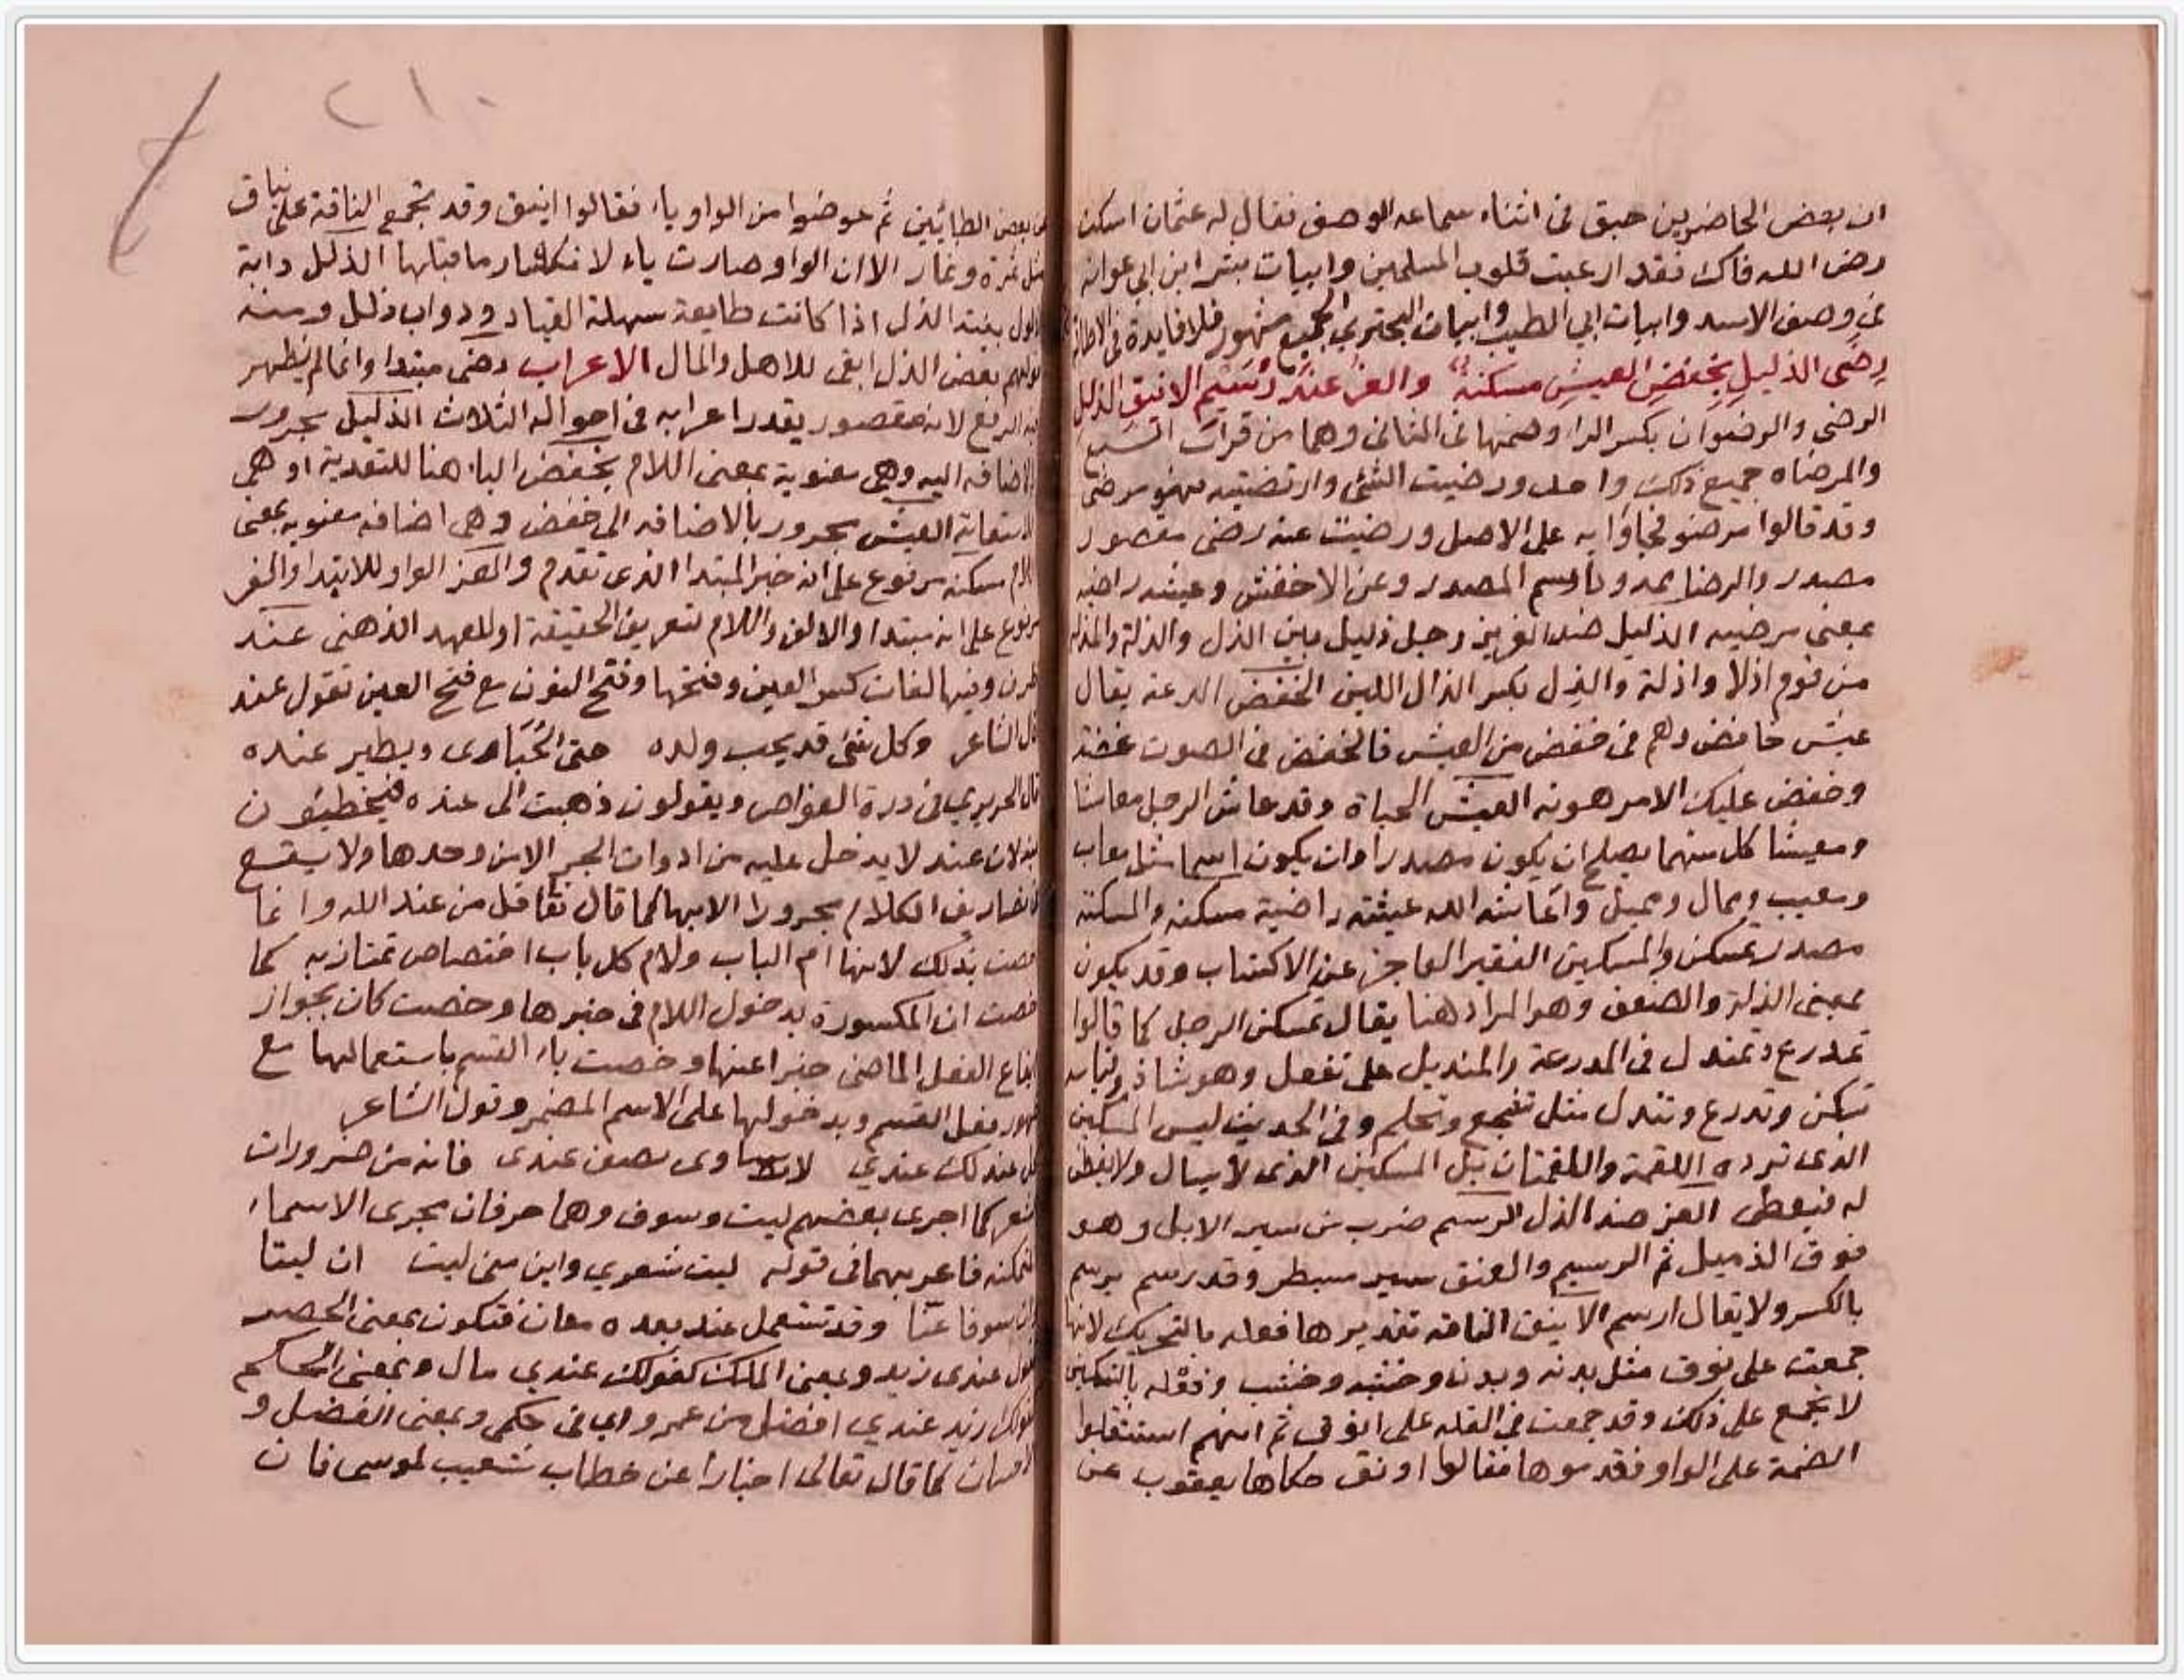 ان بعض الحاضرين حبق في اثناء سماعه الوصف فقال له عثمان اسكت
رض الله فاك فقد ارعبت قلوب المسلمين وابيات بشر ابن ابي عوانه
في وصف الاسد وابيات ابي الطيب وابيات البحتري الجميع مشهور فلا فايدة في الاطالة
رضى الذليل بخفض العيش مسكنة والعز عند رسيم الاينق الذلل
الرضى والرضوان بكسر الرا وضمها في الثاني وهما من قرات السبع
والمرضاه جميع ذلك واحد ورضيت الشئ وارتضيته فهو مرضى
وقد قالوا مرضو فجاؤا به على الاصل ورضيت عنه رضى مقصور
مصدر والرضا يمد وناوسم المصدر وعن الاخفش وعيشه راضيه
بمعنى مرضيه الذليل ضد العزيز رجل ذليل بين الذل والذلة والمذله
من قوم اذلا واذلة والذل بكسر الذال اللين الخفض الدعة يقال
عيش خافض وهم في خفض من العيش فالخفض في الصوت غضة
وخفض عليك الامر هونه العيش الحياة وقد عاش الرجل معاشا
ومعيشا كل منهما يصلح ان يكون مصدرا وان يكون اسما مثل معاب
ومعيب وممال ومميل واعاشه الله عيشة راضية مسكنه والمسكنة
مصدر تمسكن والمسكين الفقير العاجز عن الاكتساب وقد يكون
بمعنى الذلة والضعف وهو المراد هنا يقال تمسكن الرجل كما قالوا
تمدرع وتمندل في المدرعة والمنديل على تمفعل وهو شاذ وقياسه
تسكن وتدرع وتندل مثل تشجع وتحلم وفي الحديث ليس المسكين
الذى ترده اللقمة واللقمتان بل المسكين الذى لا يسال ولا يفطن
له فيعطى العز ضد الذل الرسيم ضرب من سير الابل وهو
فوق الذميل ثم الرسيم والعنق سير مسبطر وقد رسم يرسم
بالكسر ولا يقال ارسم الاينق الناقه تقديرها فعله بالتحريك لانها
جمعت على نوق مثل بدنه وبدن وخشبه وخشب وفعله بالتسكين
لا تجمع على ذلك وقد جمعت في القله على انوق ثم انهم استثقلوا
الضمة على الواو فقدموها فقالوا اونق حكاها يعقوب عن
بعض الطائيين ثم عوضوا من الواو ياء فقالوا اينق وقد تجمع الناقة على نياق
مثل ثمرة وثمار الا ان الواو صارت ياء لانكسار ما قبلها الذلل دابة
ذلول بينة الذل اذا كانت طايعة سهلة القياد ودواب ذلل ومنه
قولهم بعض الذل ابقى للاهل والمال الاعراب رضى مبتدا وانما لم يظهر
فيه الرفع لانه مقصور يقدر اعرابه في احواله الثلاث الذليل مجرور
بالاضافه اليه وهي معنوية بمعنى اللام بخفض الباء هنا للتعدية او هي
للاستعانة العيش مجرور بالاضافه الى خفض وهي اضافه معنويه بمعنى
اللام مسكنه مرفوع على انه خبر المبتدا الذى تقدم والعز الواو للابتدا والعز
مرفوع على انه مبتدا والالف واللام لتعريف الحقيقة او للعهد الذهنى عند
ظرف وفيها لغات كسر العين وفتحها وفتح النون مع فتح العين تقول عند
قال الشاعر وكل شئ قد يحب ولده حتى الحبارى ويطير عنده
قال الحريري في درة الغواص ويقولون ذهبت الى عنده فيخطئون
فيه لان عند لا يدخل عليه من ادوات الجر الا من وحدها ولا يقع
تصاريف الكلام مجرورا الا بها كما قال تعا قل من عند الله وانما
خصت بذلك لانها ام الباب ولام كل باب اختصاص تمتاز به كما
خصت ان المكسورة بدخول اللام في خبرها وخصت كان بجواز
ايقاع الفعل الماضى خبرا عنها وخصت باء القسم باستعمالها مع
ظهور فعل القسم وبدخولها على الاسم المضمر وقول الشاعر
كل عند لك عندي لا يساوى نصف عندى فانه من ضرورات
الشعر كما اجرى بعضهم ليت وسوف وهما حرفان مجرى الاسماء
المتمكنه فاعربهما في قوله ليت شعري واين منى ليت ان ليتا
وان سوفا عنا وقد تستعمل عند بعده معان فتكون بمعنى الحصر
تقول عندى زيد وبمعنى الملك كقولك عندي مال وبمعنى الحكم
كقولك زيد عندي افضل من عمرو اي في حكمى وبمعنى الفضل و
الاحسان كما قال تعالى اخبارا عن خطاب شعيب لموسى فان